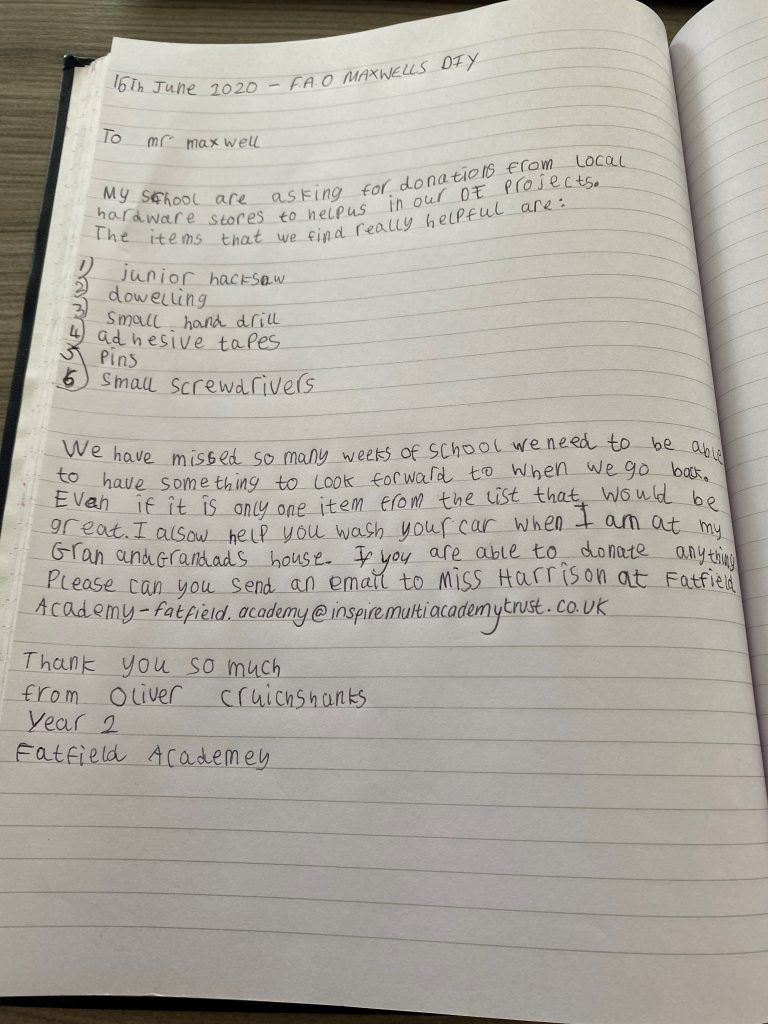 16Th June 2020 - F.A.O MAXWELLS DIY
To mr maxwell
My school are asking for donations from local
hardware stores to helpus in our DE Projects.
The items that we find really helpful are:
1) junior hacksaw
2) dowelling
3) small hand drill
4) adhesive tapes
5) Pins
6) Small Screwdrivers
We have missed so many weeks of school we need to be able
to have something to look forward to when we go back.
Evan if it is only one item from the list that would be
great. I alsow help you wash your car when I am at my
Gran andGrandads house. If you are able to donate anything
Please can you send an email to Miss Harrison at Fatfield
Academy-fatfield.academy@inspiremultiacademytrust.co.uk
Thank you so much
from Oliver Cruichshanks
Year 2
Fatfield Academey